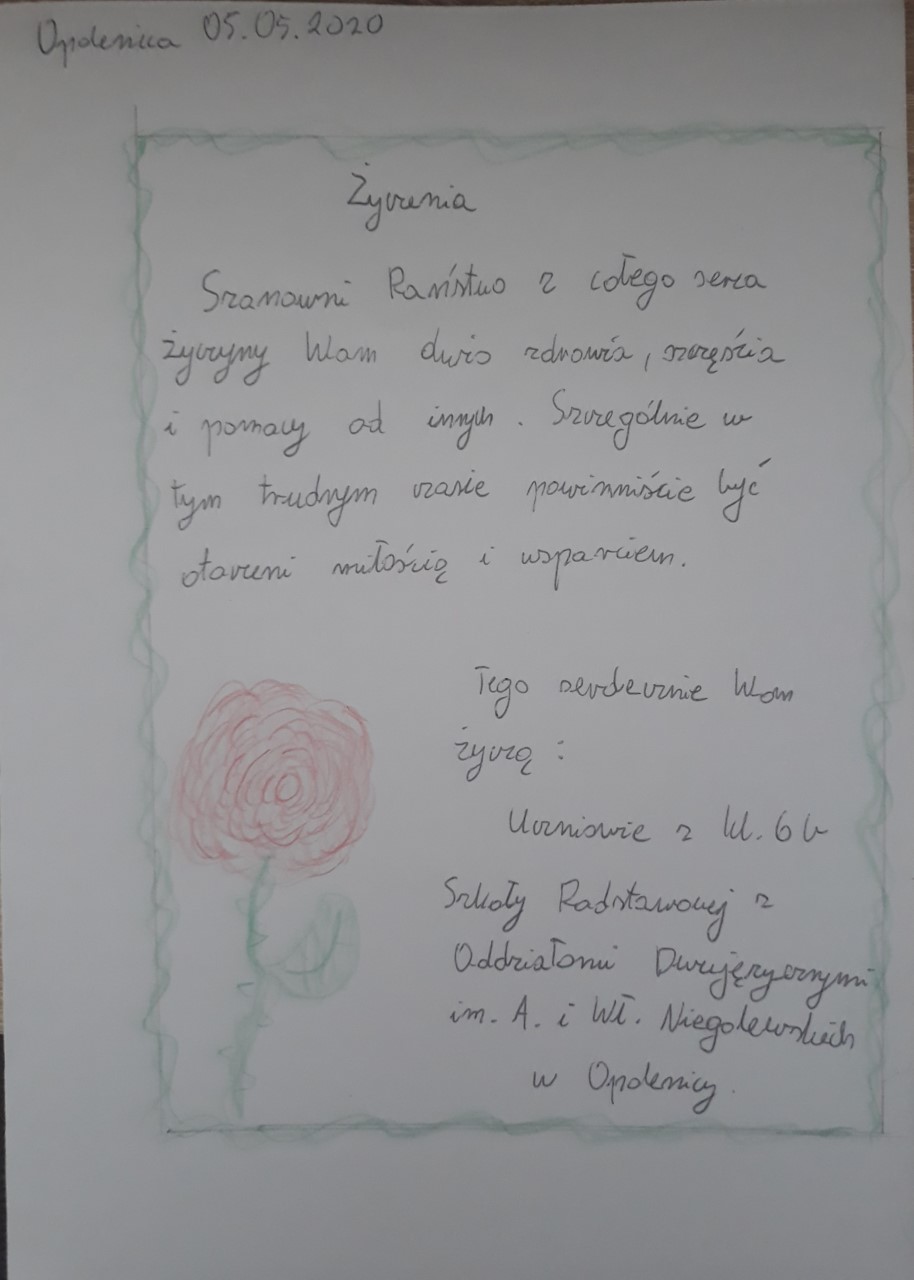 Opalenica 05.05.2020
Życzenia
Szanowni Państwo z całego serca
życzymy Wam dużo zdrowia, szczęścia
i pomocy od innych. Szczególnie w
tym trudnym czasie powinniście być
otaczeni miłością i wsparciem.
Tego serdecznie Wam
życzą:
Uczniowie z kl. 6 b
Szkoły Podstawowej z
Oddziałami Dwujęzycznymi
im. A. i Wł. Niegolewskich
w Opalenicy.